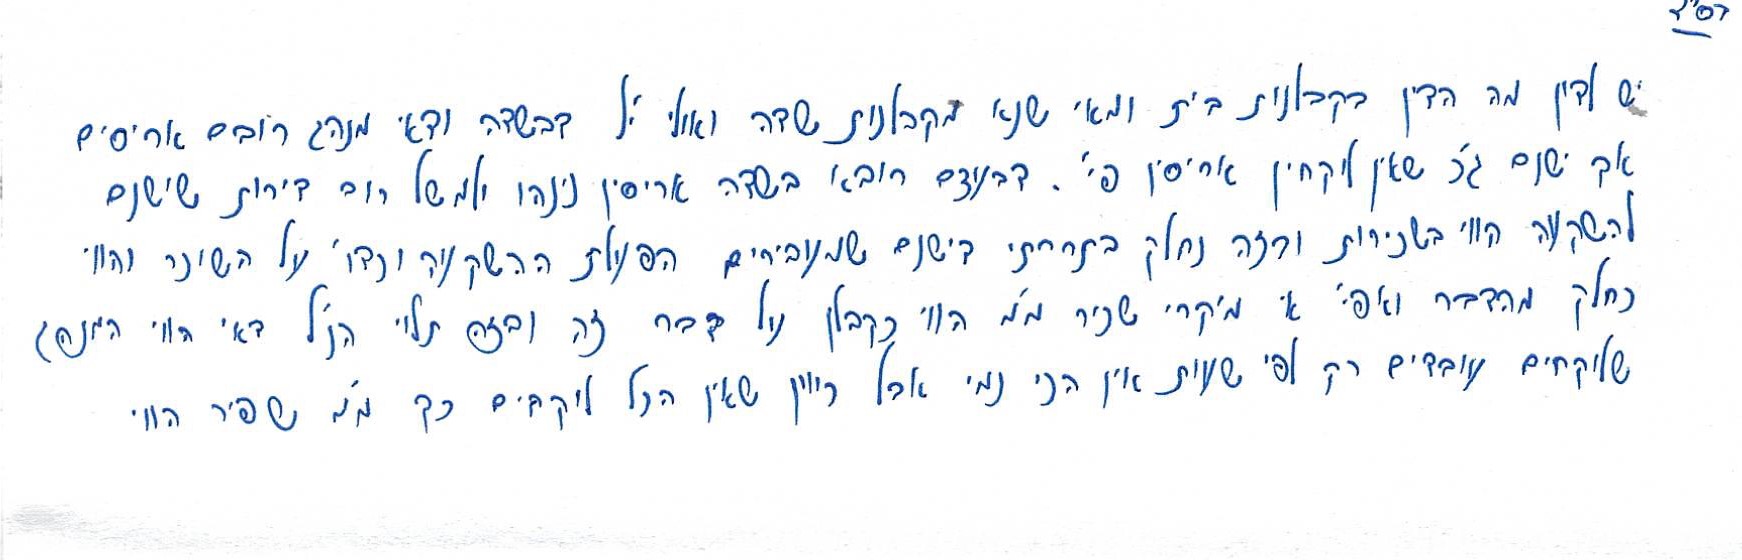 בס"ד
יש לדון מה הדין בקבלנות בית ומאי שנא מקבלנות שדה ואולי י"ל דבשדה ודאי מנהג רובם אריסים
אך ישנם ג"כ שאין לוקחין אריסין פי'. דבעצם רובא בשדה אריסין נינהו ולמשל רוב דירות שישנם
להשקעה הווי בשכירות ובזה נחלק בתרתי דישנם שמעבירים הפעולת ההשקעה וכדו' על השוכר והווי
כחלק מהדבר ואפי' אי מיקרי שכיר מ"מ הווי כקבלן על דבר זה ובזה תלוי הנ"ל דאי הווי המנהג
שלוקחים עובדים רק לפי שעות אין הכי נמי אבל כיוון שאין הכל לוקחים כך מ"מ שפיר הווי